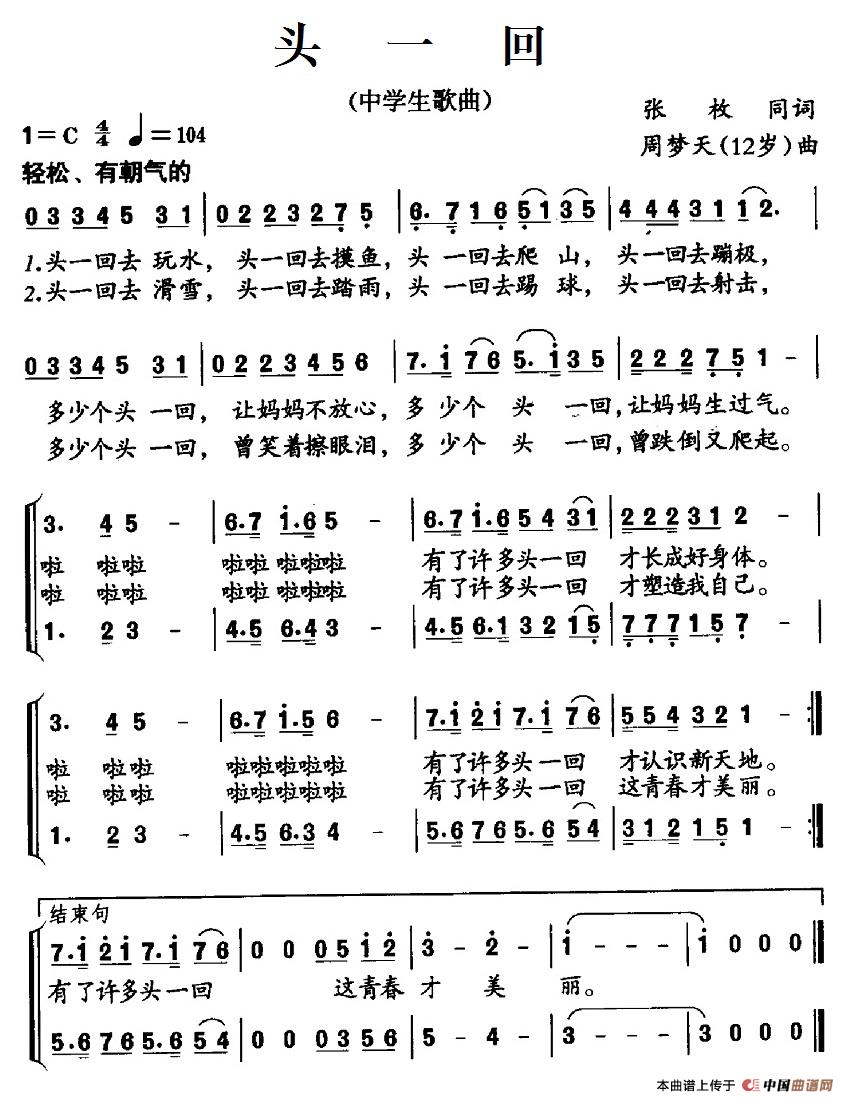 头 一 回
（中学生歌曲）
1=C 4/4 ♩=104
张 枚 同词
周梦天（12岁）曲
轻松、有朝气的
0 3 3 4 5 3 1 | 0 2 2 3 2 7 5 | 6. 7 1 6 5 1 3 5 | 4 4 4 3 1 1 2. |
1.头一回去 玩水， 头一回去摸鱼，头 一回去爬 山， 头一回去蹦极，
2.头一回去 滑雪， 头一回去踏雨，头 一回去踢 球， 头一回去射击，
0 3 3 4 5 3 1 | 0 2 2 3 4 5 6 | 7. 1 7 6 5. 1 3 5 | 2 2 2 7 5 1 - |
多少个头 一回， 让妈妈不放心，多 少个 头 一回，让妈妈生过气。
多少个头 一回， 曾笑着擦眼泪，多 少个 头 一回，曾跌倒又爬起。
3. 4 5 - | 6. 7 1. 6 5 - | 6. 7 1. 6 5 4 3 1 | 2 2 2 3 1 2 - |
啦 啦啦 啦啦 啦啦啦 有了许多头一回 才长成好身体。
啦 啦啦 啦啦 啦啦啦 有了许多头一回 才塑造我自己。
1. 2 3 - | 4. 5 6. 4 3 - | 4. 5 6. 1 3 2 1 5 | 7 7 7 1 5 7 - |
3. 4 5 - | 6. 7 1. 5 6 - | 7. 1 2 1 7. 1 7 6 | 5 5 4 3 2 1 - :|
啦 啦啦 啦啦啦啦啦 有了许多头一回 才认识新天地。
啦 啦啦 啦啦啦啦啦 有了许多头一回 这青春才美丽。
1. 2 3 - | 4. 5 6. 3 4 - | 5. 6 7 6 5. 6 5 4 | 3 1 2 1 5 1 - :|
结束句
7. 1 2 1 7. 1 7 6 | 0 0 0 5 1 2 | 3 - 2 - | 1 - - - | 1 0 0 0 ‖
有了许多头一回 这青春 才 美 丽。
5. 6 7 6 5. 6 5 4 | 0 0 0 3 5 6 | 5 - 4 - | 3 - - - | 3 0 0 0 ‖
本曲谱上传于 中国曲谱网